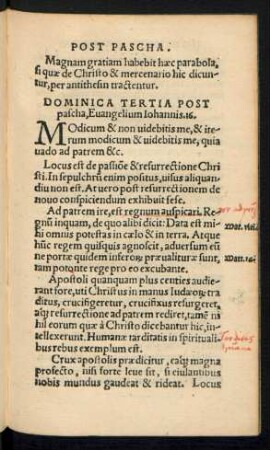 POST PASCHA.
Magnam gratiam habebit hæc parabola,
si quæ de Christo & mercenario hic dicun
tur, per antithesin tractentur.
DOMINICA TERTIA POST
pascha, Euangelium Iohannis. 16.
MOdicum & non uidebitis me, & ite
rum modicum & uidebitis me, quia
uado ad patrem &c.
Locus est de passiõe & resurrectione Chri
sti. In sepulchrũ enim positus, uisus aliquan
diu non est. At uero post resurrectionem de
nouo conspiciendum exhibuit sese.
Ad patrem ire, est regnum auspicari. Re
gnũ inquam, de quo alibi dicit: Data est mi
hi omnius potestas in cælo & in terra. Atque
hũc regem quisquis agnoscit, aduersum eũ
ne portæ quidem inferorũ præualituræ sunt,
tam potente rege pro eo excubante.
Apostoli quanquam plus centies audie
rant fore, uti Christus in manus Iudæorũ tra
ditus, crucifigeretur, crucifixus resurgeret,
atq́ꝫ resurrectione ad patrem rediret, tamẽ ni
hil eorum quæ à Christo dicebantur hic, in
tellexerunt. Humanæ tarditatis in spirituali
bus rebus exemplum est.
Crux apostolis prædicitur, eaq́ꝫ magna
profecto, nisi forte leue sit, si eiulantibus
nobis mundus gaudeat & rideat. Locus